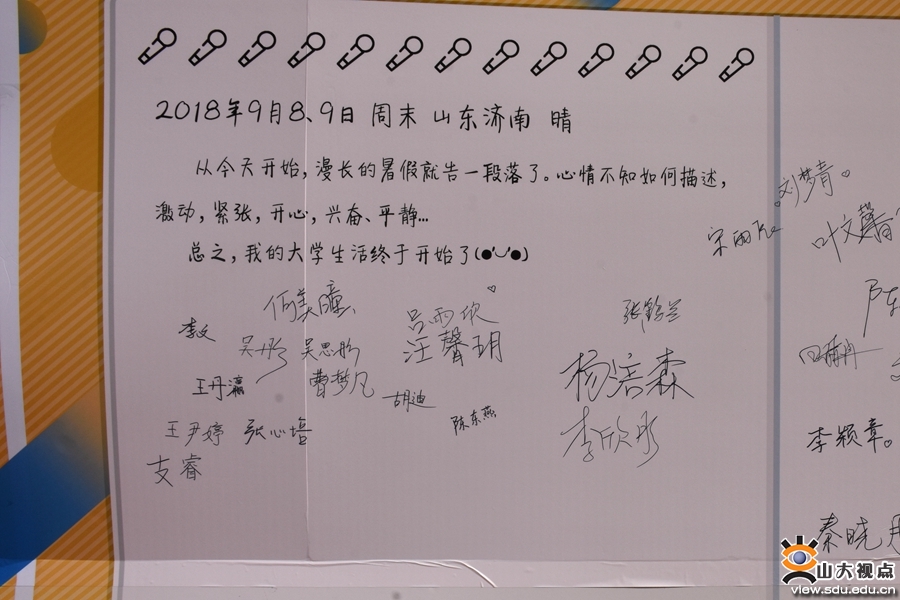 2018年9月8、9日 周末 山东济南 晴
从今天开始，漫长的暑假就告一段落了。心情不知如何描述，
激动，紧张，开心，兴奋、平静...
总之，我的大学生活终于开始了(●'◡'●)
刘梦青
叶文馨
吕雨欣
李文
吴彤 吴思彤
汪馨玥
王丹瀛
曹梦凡
胡迪
杨浩森
陈东燕
王尹婷 张心培
李欣彤
李颖章。
支睿
秦晓丹
山大视点
view.sdu.edu.cn